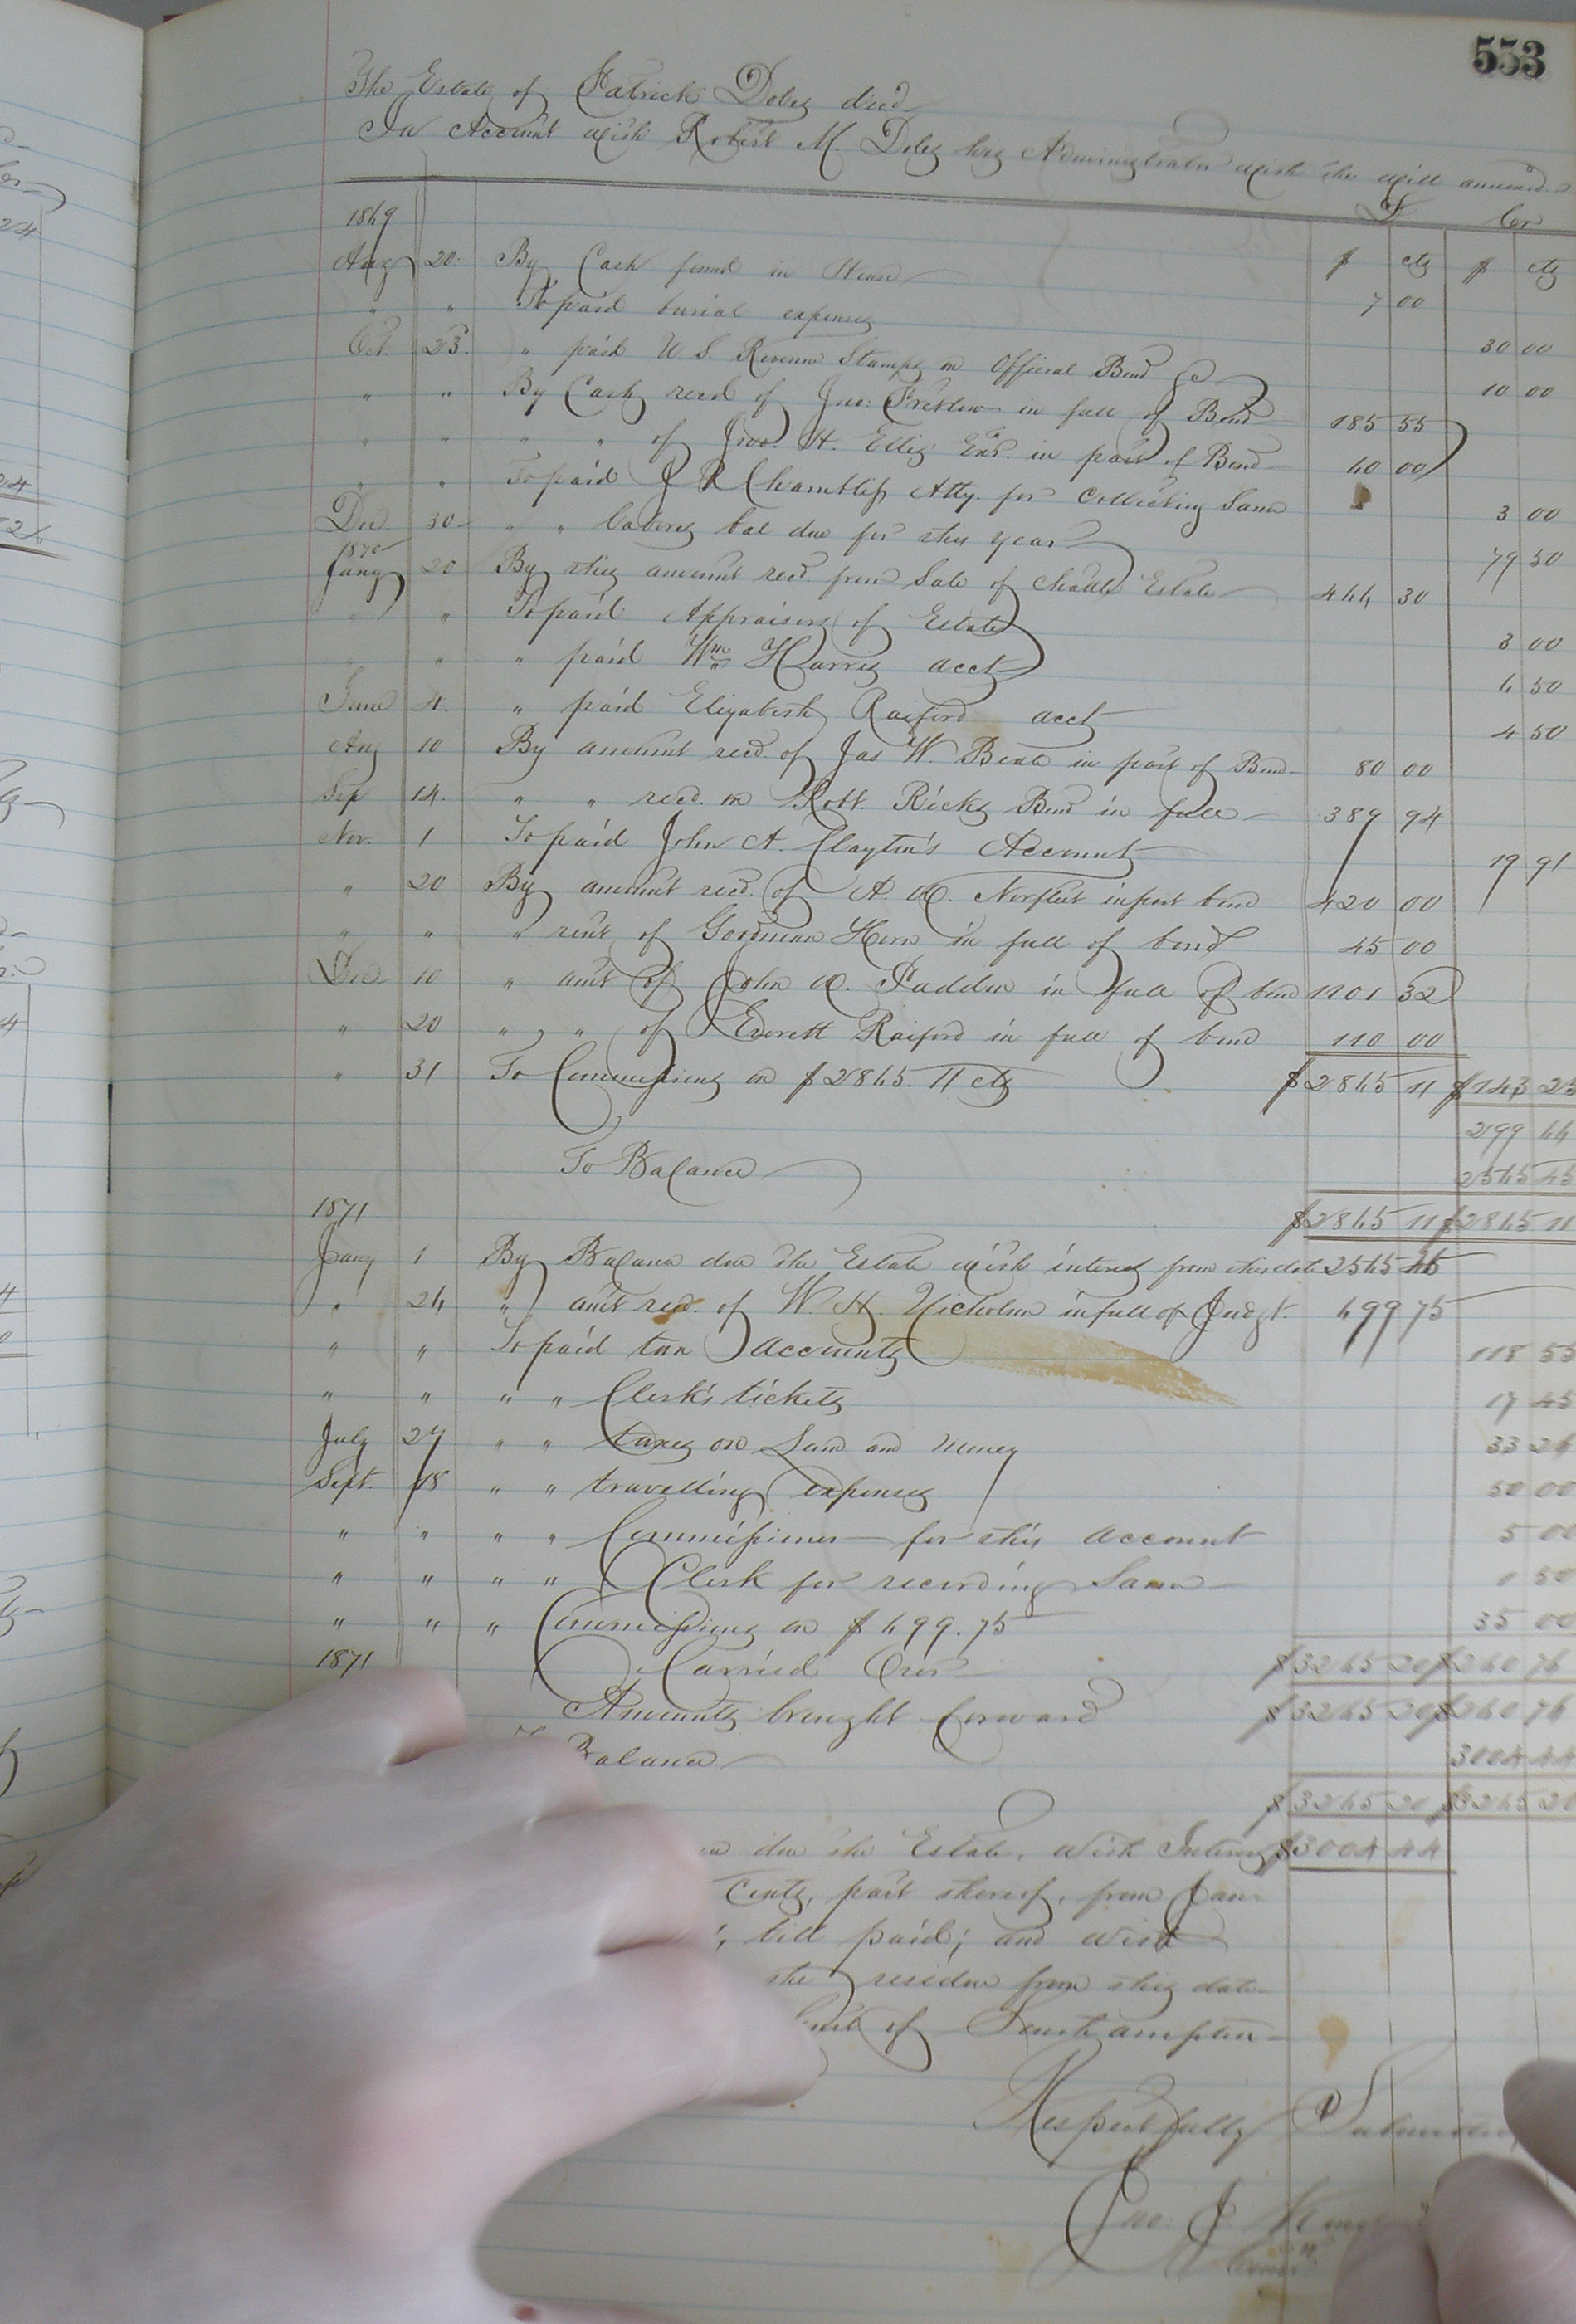 553
The Estate of Patrick Doles decd
In Account with Robert M. Doles his Administrator with the will annexed
Dr Cr
1869 $ cts $ cts
Aug 20. By Cash found in House 7 00
" " To paid burial expenses 30 00
Oct. 23. " paid U. S. Revenue Stamps on Official Bond &c 10 00
" " By Cash recd of Jno: Pretlow in full of Bond 185 55
" " " " of Jno. H. Ellis Exr. in part of Bond 60 00
" " To paid J R Chambliss Atty. for Collecting Same 3 00
Dec. 30 " " bal due for this year 79 50
1870
Jany 20 By this amount recd from Sale of Chattle Estate 466 30
" " To paid Appraisers of Estate 3 00
" " " paid Wm Harris acct 6 50
June 4. " paid Elizabeth Raiford acct 4 50
Aug 10 By amount recd. of Jas W. Beale in part of Bond 80 00
Sep 14. " " recd. on Robt. Ricks Bond in full 389 94
Nov. 1 To paid John A. Clayton's Account 19 91
" 20 By amount recd. of A. Norfleet in part bond 420 00
" " " rent of Goodman Horn in full of bond 45 00
Dec 10 " amt of John Fadden in full of bond 1101 32
" 20 " " of Everett Raiford in full of bond 110 00
" 31 To Commissions on $2865.11 cts $2865 11 $143 25
299 66
To Balance 2565 45
1871 $2865 11 $2865 11
Jany 1 By Balance due the Estate with interest from this date 2565 45
" 26 " amt recd. of W. H. Nicholson in full of Judgt. 699 75
" " To paid two accounts 118 55
" " " " Clerk's tickets 17 45
July 27 " " taxes on Land and money 33 26
Sept. 18 " " travelling expenses 50 00
" " " " Commissioner for this account 5 00
" " " " Clerk for recording Same 1 50
" " " Commissions on $699.75 35 00
1871 Carried Over $3265 20 $260 76
Amounts brought forward $3265 20 $260 76
Balance 3004 44
$3265 20 $3265 20
due the Estate, with Interest $3004 44
Cents, part thereof, from Jan
till paid; and with
the residue from this date
of Southampton
Respectfully Submitted
Jno. J.